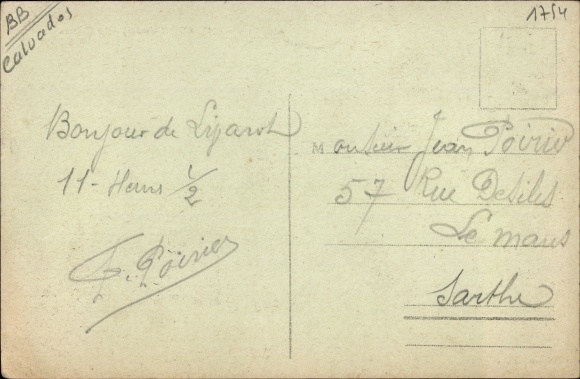 BB
Calvados
1754
Bonjour de
11 - Heurs 1/2
F. Poirier
Monsieur Jean Poirier
57 Rue
Le Mans
Sarthe